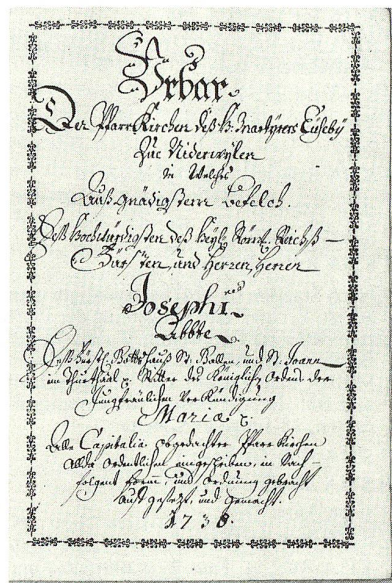 Urbar
Der Pfarr Kirchen deß H. Martyrers Eusebÿ
Zue Niderwÿlen
In Welches
Auß gnädigstem befelch
Deß Hochwürdigsten deß Heÿl. Röm. Reichß
Fürsten, und Herren, Herrn
Josephi
Abbte
Deß Fürstl. Gottshauß St. Gallen, und St. Joann
im Thurthaal x. Ritter des Königlich. Ordens der
Jungfraülichen Verkündigung
Mariæ x.
Alle Capitalia obgedachter Pfarr Kirchen
allda ordentlichen eingeschriben, in Nach-
folgent form, und ordnung gebracht
auß gesezt, und gemacht.
1738.